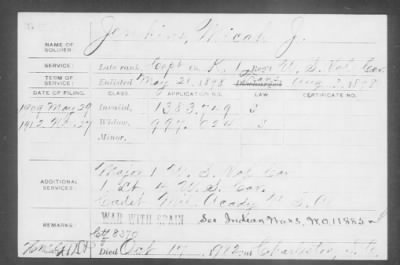 Jenkins, Micah J.
NAME OF SOLDIER:
SERVICE: Late rank, Capt. Tr. K, 1 Reg't U.S. Vol. Cav.
TERM OF SERVICE: Enlisted May 21, 1898 Discharged Aug. 3, 1898
DATE OF FILING. CLASS. APPLICATION NO. LAW CERTIFICATE NO.
1909 May 29 Invalid, 1383.729 S
1912 27 Widow, 924 S
Minor,
ADDITIONAL SERVICES:
Major 1 U.S. Vol. Cav
1 Lt. 4 U.S. Cav.
Cadet Mil. Acad'y U.S.A.
REMARKS: WAR WITH SPAIN See Indian Wars, W.O. 11882
8370
Died Oct 17, 1912, at Charleston, S.C.